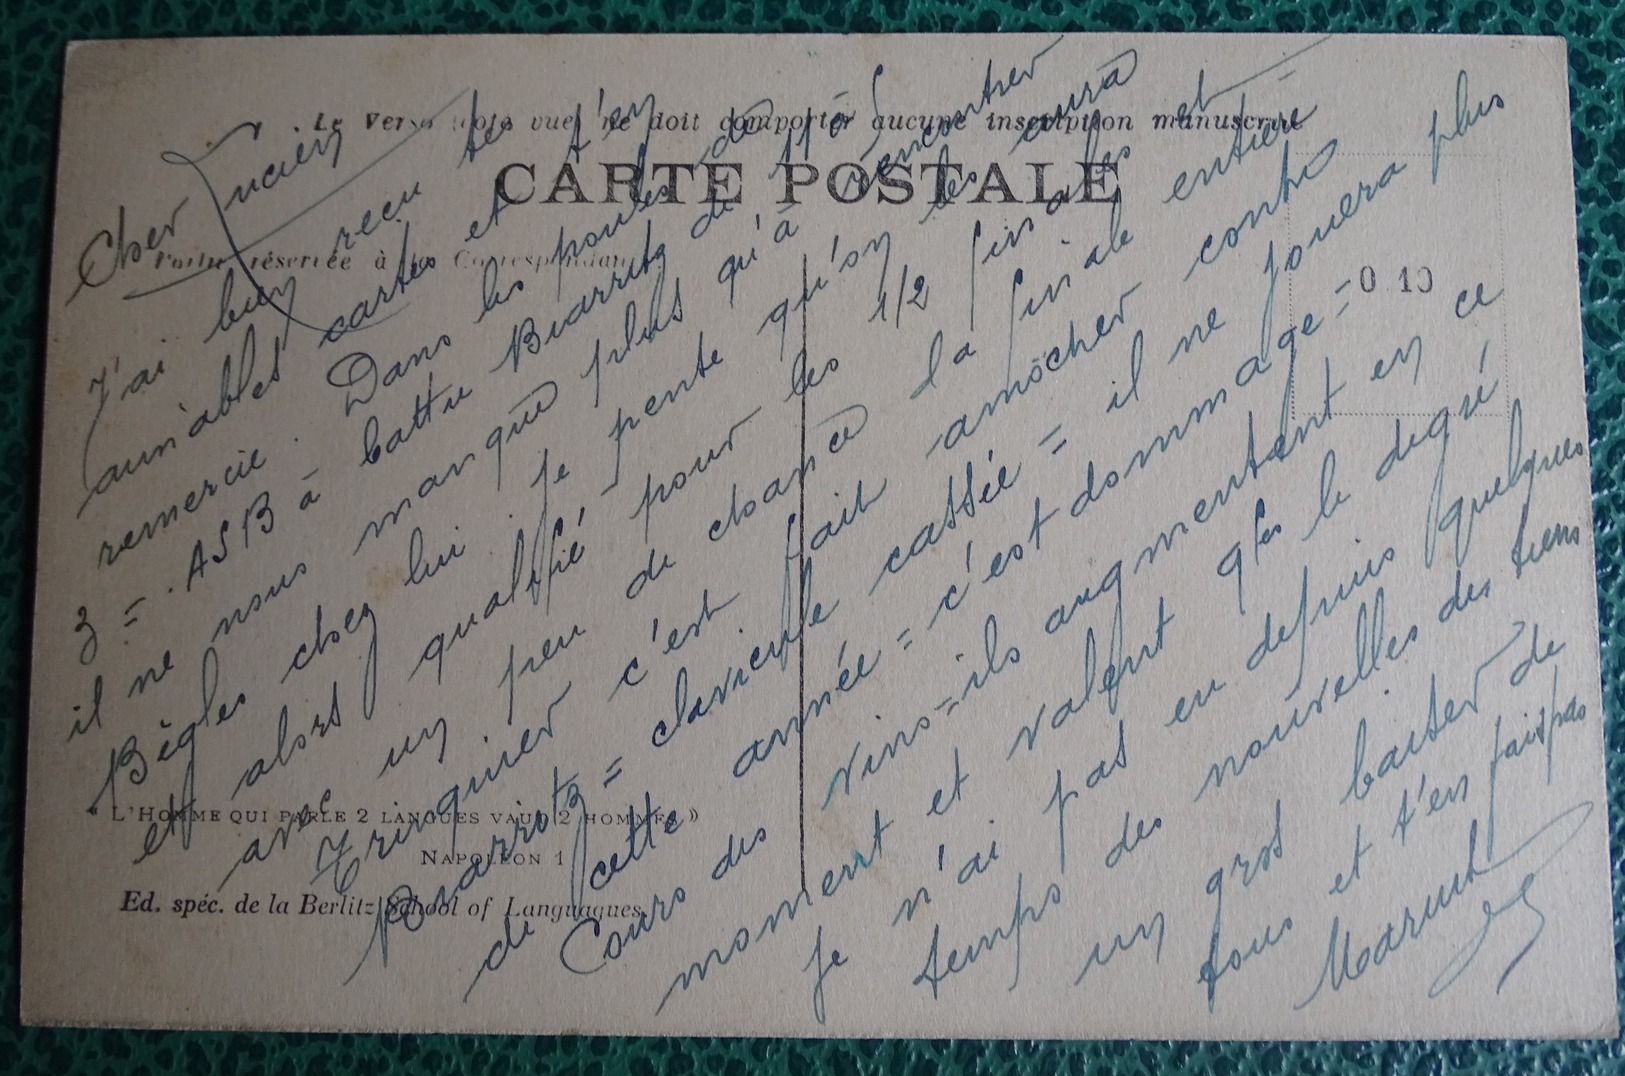 Le Verso (côté vue) ne doit comporter aucune inscription manuscrite
CARTE POSTALE
Partie réservée à la Correspondance
0 10
« L'HOMME QUI PARLE 2 LANGUES VAUT 2 HOMMES »
NAPOLÉON 1
Ed. spéc. de la Berlitz School of Languagues
Cher Lucien
J'ai bien reçu tes
aimables cartes et t'en
remercie. Dans les poules de
3 = ASB à battu Biarritz de 11 à 0
il ne nous manque plus qu'à rencontrer
Bègles chez lui je pense qu'on les aura
et alors qualifié pour les 1/2 finales et
avec un peu de chance la finale entière =
Trinquier c'est fait amocher contre
Biarritz = clavicule cassée = il ne jouera plus
de cette année = c'est dommage =
Cours des vins = ils augmentent en ce
moment et valent le degré
je n'ai pas eu depuis quelques
temps des nouvelles des tiens
un gros baiser de
tous et t'en fais pas